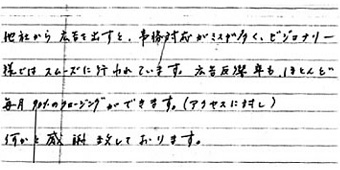 他社から広告を出すと、事務対応がミスが多く、ビジョナリー
様ではスムーズに行われています。広告反響率も、ほとんど
毎月90%のクロージングができます。(アクセスに対し)
何かと感謝致しております。